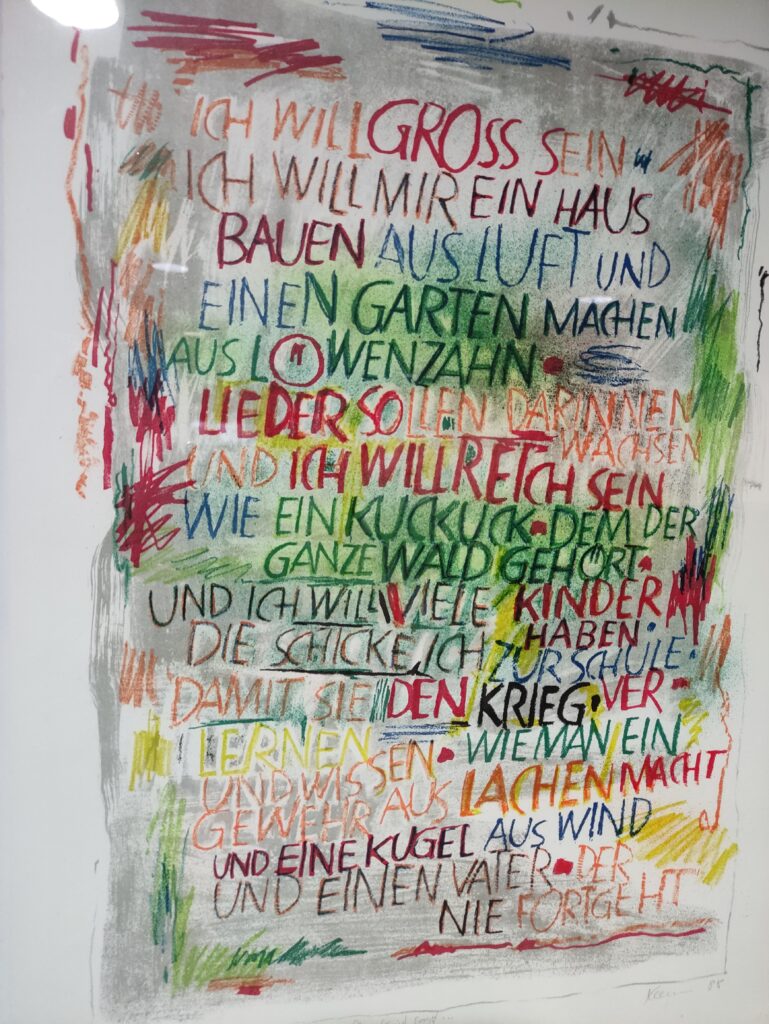 ICH WILL GROSS SEIN
ICH WILL MIR EIN HAUS
BAUEN AUS LUFT UND
EINEN GARTEN MACHEN
AUS LÖWENZAHN •
LIEDER SOLLEN DARINNEN
WACHSEN
UND ICH WILL REICH SEIN
WIE EIN KUCKUCK • DEM DER
GANZE WALD GEHÖRT •
UND ICH WILL VIELE KINDER
HABEN •
DIE SCHICKE ICH ZUR SCHULE •
DAMIT SIE DEN KRIEG • VER -
LERNEN
UND WISSEN • WIE MAN EIN
GEWEHR AUS LACHEN MACHT
UND EINE KUGEL AUS WIND
UND EINEN VATER • DER
NIE FORTGEHT
88